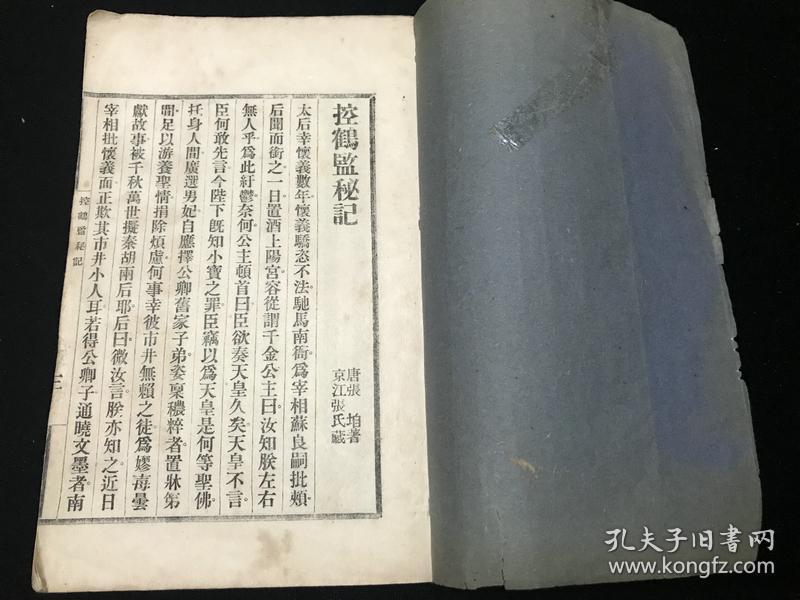 控鶴監秘記
唐張垍著
京江張氏藏
太后幸懷義數年懷義驕恣不法馳馬南衙爲宰相蘇良嗣批頰
后聞而銜之一日置酒上陽宮容從謂千金公主曰汝知朕左右
無人乎爲此紆鬱奈何公主頓首曰臣欲奏天皇久矣天皇不言
臣何敢先言今陛下旣知小寶之罪臣竊以爲天皇是何等聖佛
托身人間廣選男妃自應擇公卿舊家子弟姿稟穠粹者置牀第
間足以游養聖情捐除煩慮何事幸彼市井無賴之徒爲嫪毒曇
獻故事被千秋萬世擬秦胡兩后耶后曰微汝言朕亦知之近日
宰相批懷義面正欺其市井小人耳若得公卿子通曉文墨者南
控鶴監秘記
孔夫子旧书网
www.kongfz.com